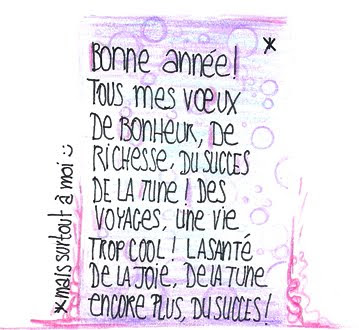 Bonne année! *
Tous mes vœux
de bonheur, de
richesse, du succes
de la tune! des
voyages, une vie
trop cool! la santé
de la joie, de la tune
encore plus, du succes!
*mais surtout à moi :)